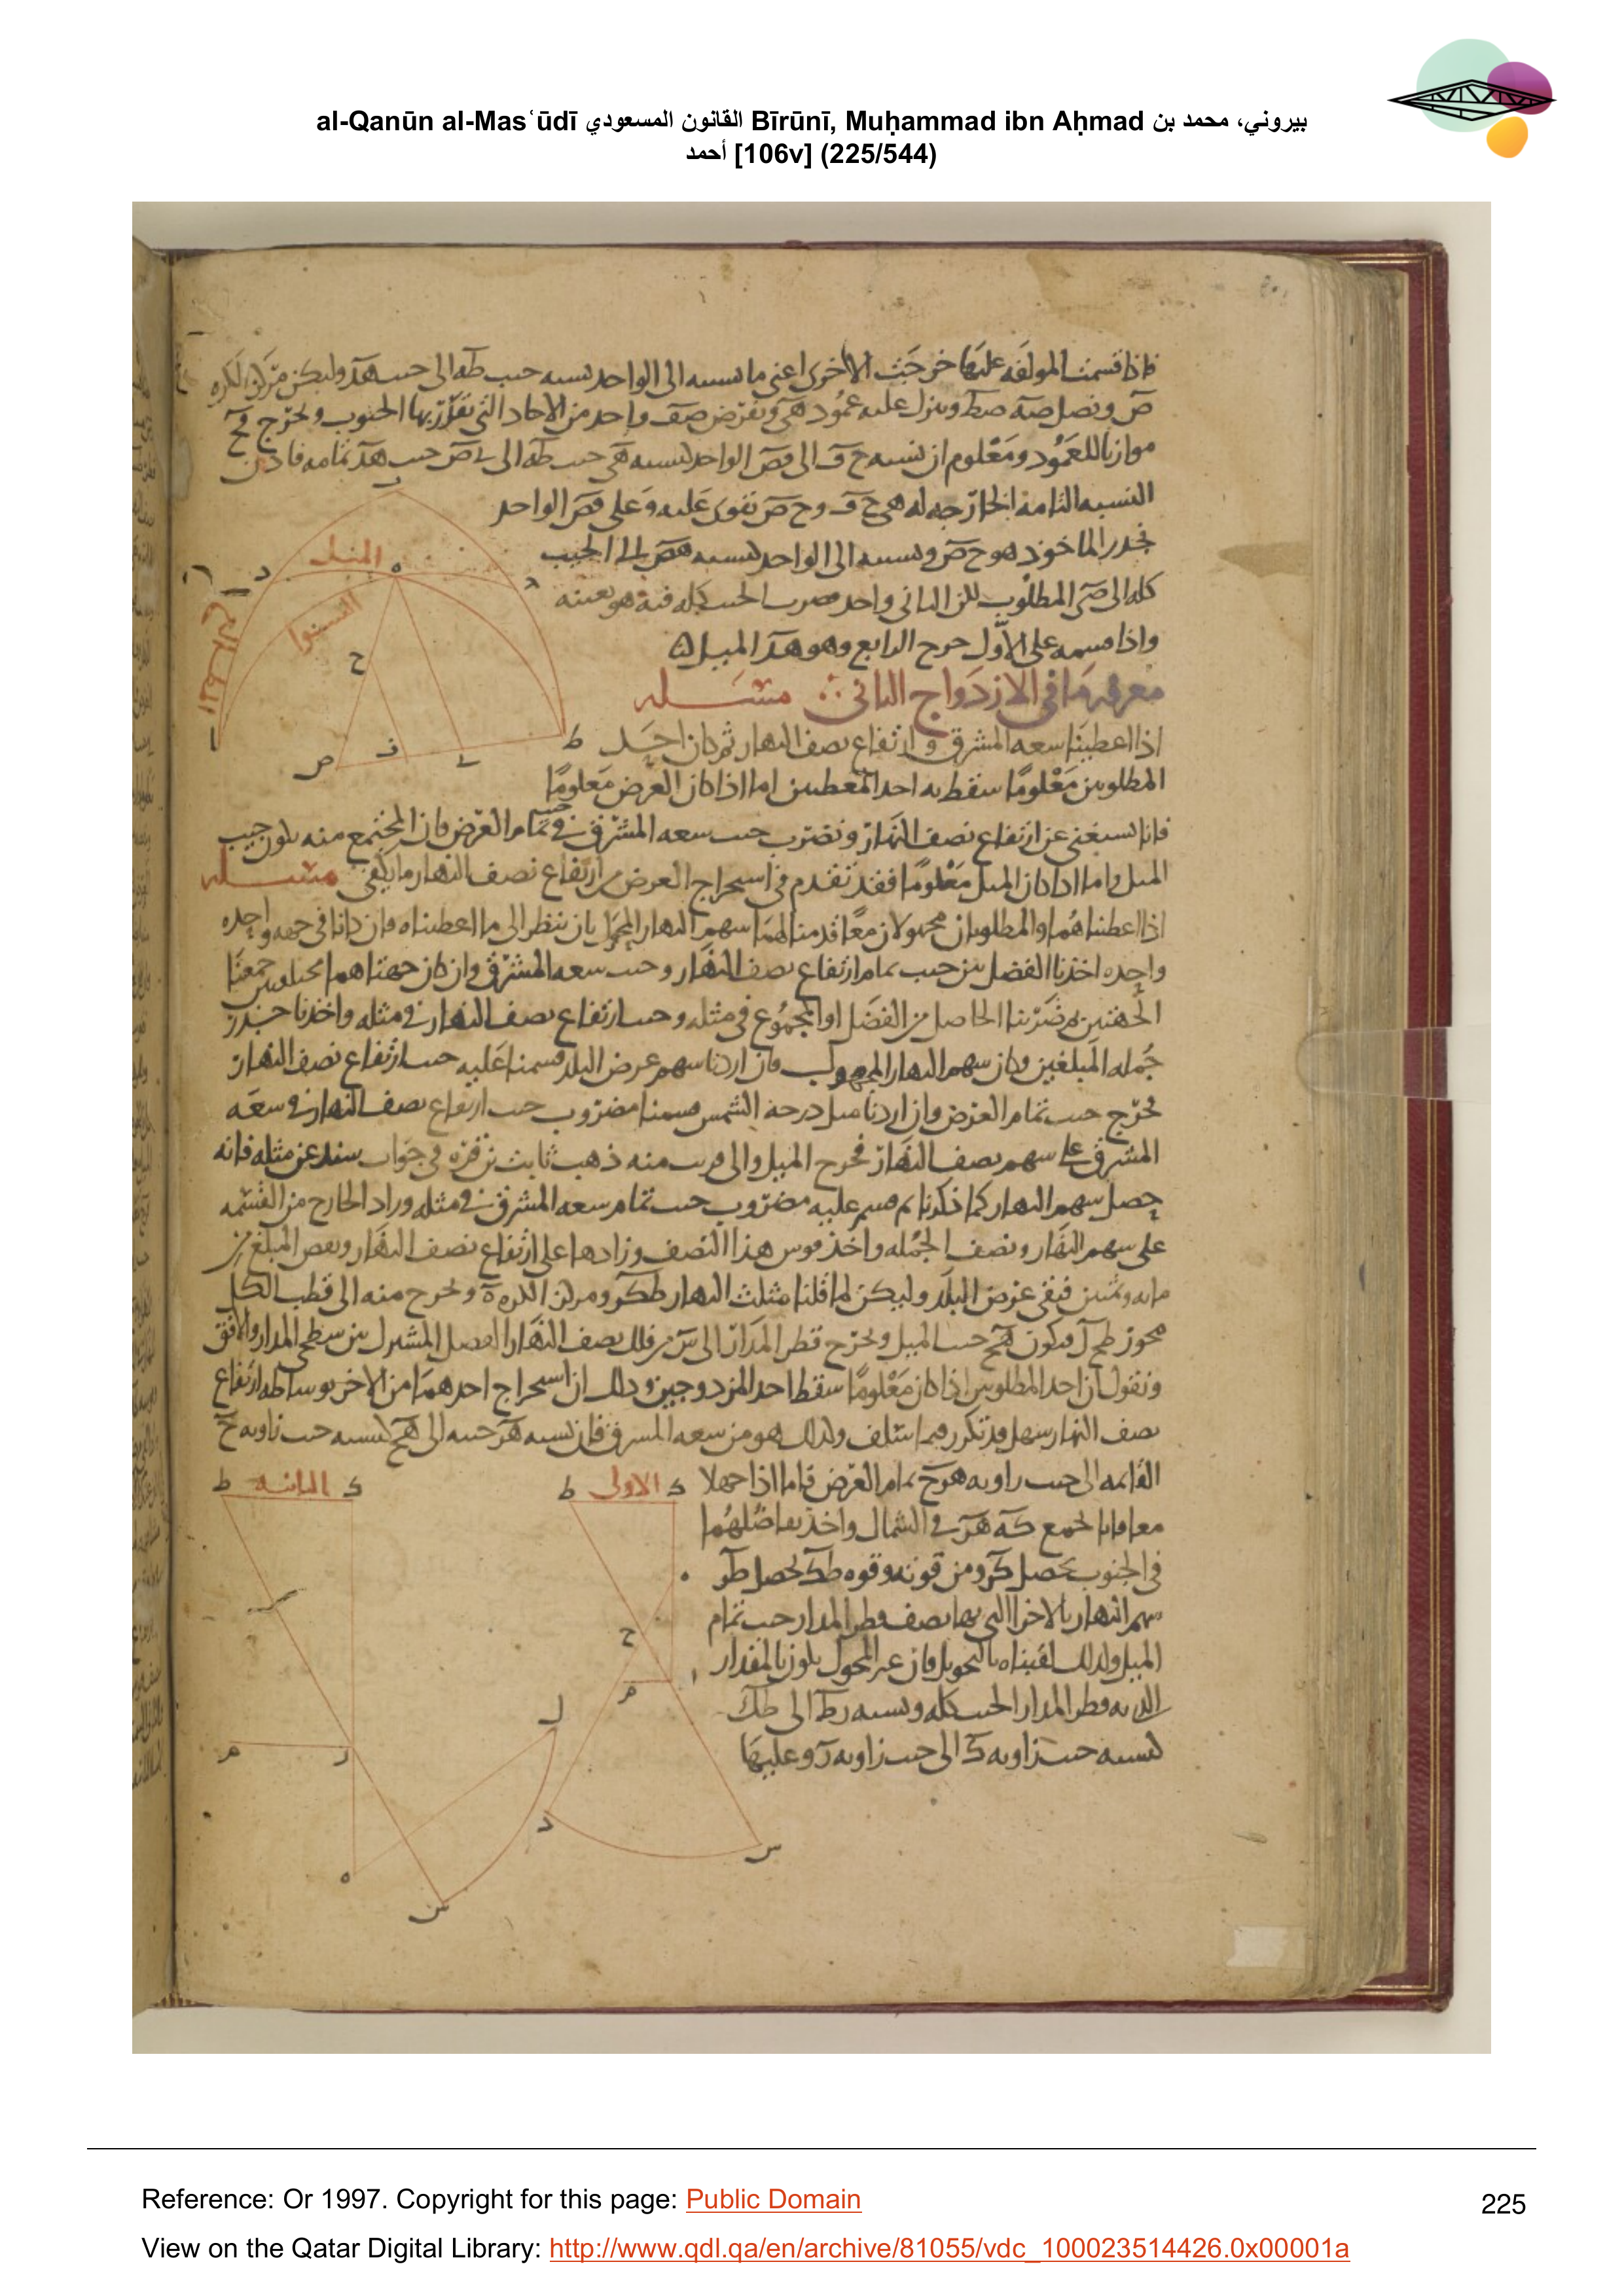 al-Qanūn al-Masʿūdī القانون المسعودي Bīrūnī, Muḥammad ibn Aḥmad بيروني، محمد بن
أحمد [106v] (225/544)
فاذا قسمت المولفه عليها خرجت الاخرى اعنى ما نسبته الى الواحد كنسبه جيب طه الى جيب هد وليكن مركز الكره
ص ونصل صه صط وينزل عليه عمود هى ونفرض صف واحد من الاحاد التى تقرر بها الجنوب ونخرج فح
موازيا للعمود ومعلوم ان نسبه ح ف الى فص الواحد كنسبه هى جيب طه الى ى ص جيب هد تمامه فاذن
النسبه الثامنه الخارجه له هى ح ف و ح ص تقوى عليه وعلى فص الواحد
فجذر الماخوذ هو ح ص ونسبته الى الواحد كنسبه هص الى الجيب
كله الى صى المطلوب لكن الثانى واحد فضرب الجيب كله فيه هو بعينه
واذا قسمه على الاول خرج الرابع وهو هد الميل
الميل
السوا
معرفه ما فى الازدواج الثانى ∴ مسله
اذا اعطينا سعه المشرق وارتفاع نصف النهار ثم كان احد
المطلوبين معلوما سقط به احد المعطيين اما اذا كان العرض معلوما
فانا نستغنى عن ارتفاع نصف النهار ونضرب جيب سعه المشرق فى جيب تمام العرض فان المجتمع منه يكون جيب
الميل واما اذا كان الميل معلوما فقد تقدم فى استخراج العرض من ارتفاع نصف النهار ما يكفى مسله
اذا اعطيناهما والمطلوبان مجهولان معا قدمنا لهما سهم النهار المحول بان ننظر الى ما اعطيناه فان كانا فى جهه واحده
واحده اخذنا الفضل بين جيب تمام ارتفاع نصف النهار وجيب سعه المشرق وان كان جهتاهما مختلفين جمعنا
الجهتين ثم ضربنا الحاصل من الفضل او المجموع فى مثله وجيب ارتفاع نصف النهار فى مثله واخذنا جذر
جمله المبلغين وكان سهم النهار المجهول فان اردنا سهم عرض البلد قسمنا عليه جيب ارتفاع نصف النهار
فخرج جيب تمام العرض وان اردنا ميل درجه الشمس قسمنا مضروب جيب ارتفاع نصف النهار فى سعه
المشرق على سهم نصف النهار فخرج الميل والى قريب منه ذهب ثابت بن قره فى جواب سند عن مثله فانه
حصل سهم النهار كما ذكرنا ثم قسم عليه مضروب جيب تمام سعه المشرق فى مثله وزاد الخارج من القسمه
على سهم النهار ونصف الجمله واخذ قوس هذا النصف وزادها على ارتفاع نصف النهار ونقص المبلغ من
مايه وثمنين فبقى عرض البلد وليكن لما قلنا مثلث النهار طكر ومركز الكره ه ونخرج منه الى قطب الكل
محور طح ل فيكون هح جيب الميل ونخرج قطر المدار الى س من فلك نصف النهار الفصل المشترك بين سطحى المدار والافق
ونقول ان احد المطلوبين اذا كان معلوما سقط احد المزدوجين وذلك ان استخراج احدهما من الاخر بوساطه ارتفاع
نصف النهار سهل وقد تكرر فيما استلف وكذلك هو من سعه المشرق فان نسبه هر جيبه الى هح كنسبه جيب زاويه ح
القايمه الى جيب زاويه هرح تمام العرض فاما اذا جهلا
معا فانا نجمع كه هر فى الشمال واخذ تفاضلهما
فى الجنوب يحصل كر ومن قوته وقوه طك يحصل طر
سهم النهار بالاجزا التى بها نصف قطر المدار جيب تمام
الميل ولذلك لقبناه بالتحويل فان غير المحول يكون بالمقدار
الذى به قطر المدار الجيب كله ونسبه رط الى طك
كنسبه جيب زاويه ك الى جيب زاويه ر وعليها
الاولى
الثانيه
Reference: Or 1997. Copyright for this page: Public Domain
225
View on the Qatar Digital Library: http://www.qdl.qa/en/archive/81055/vdc_100023514426.0x00001a